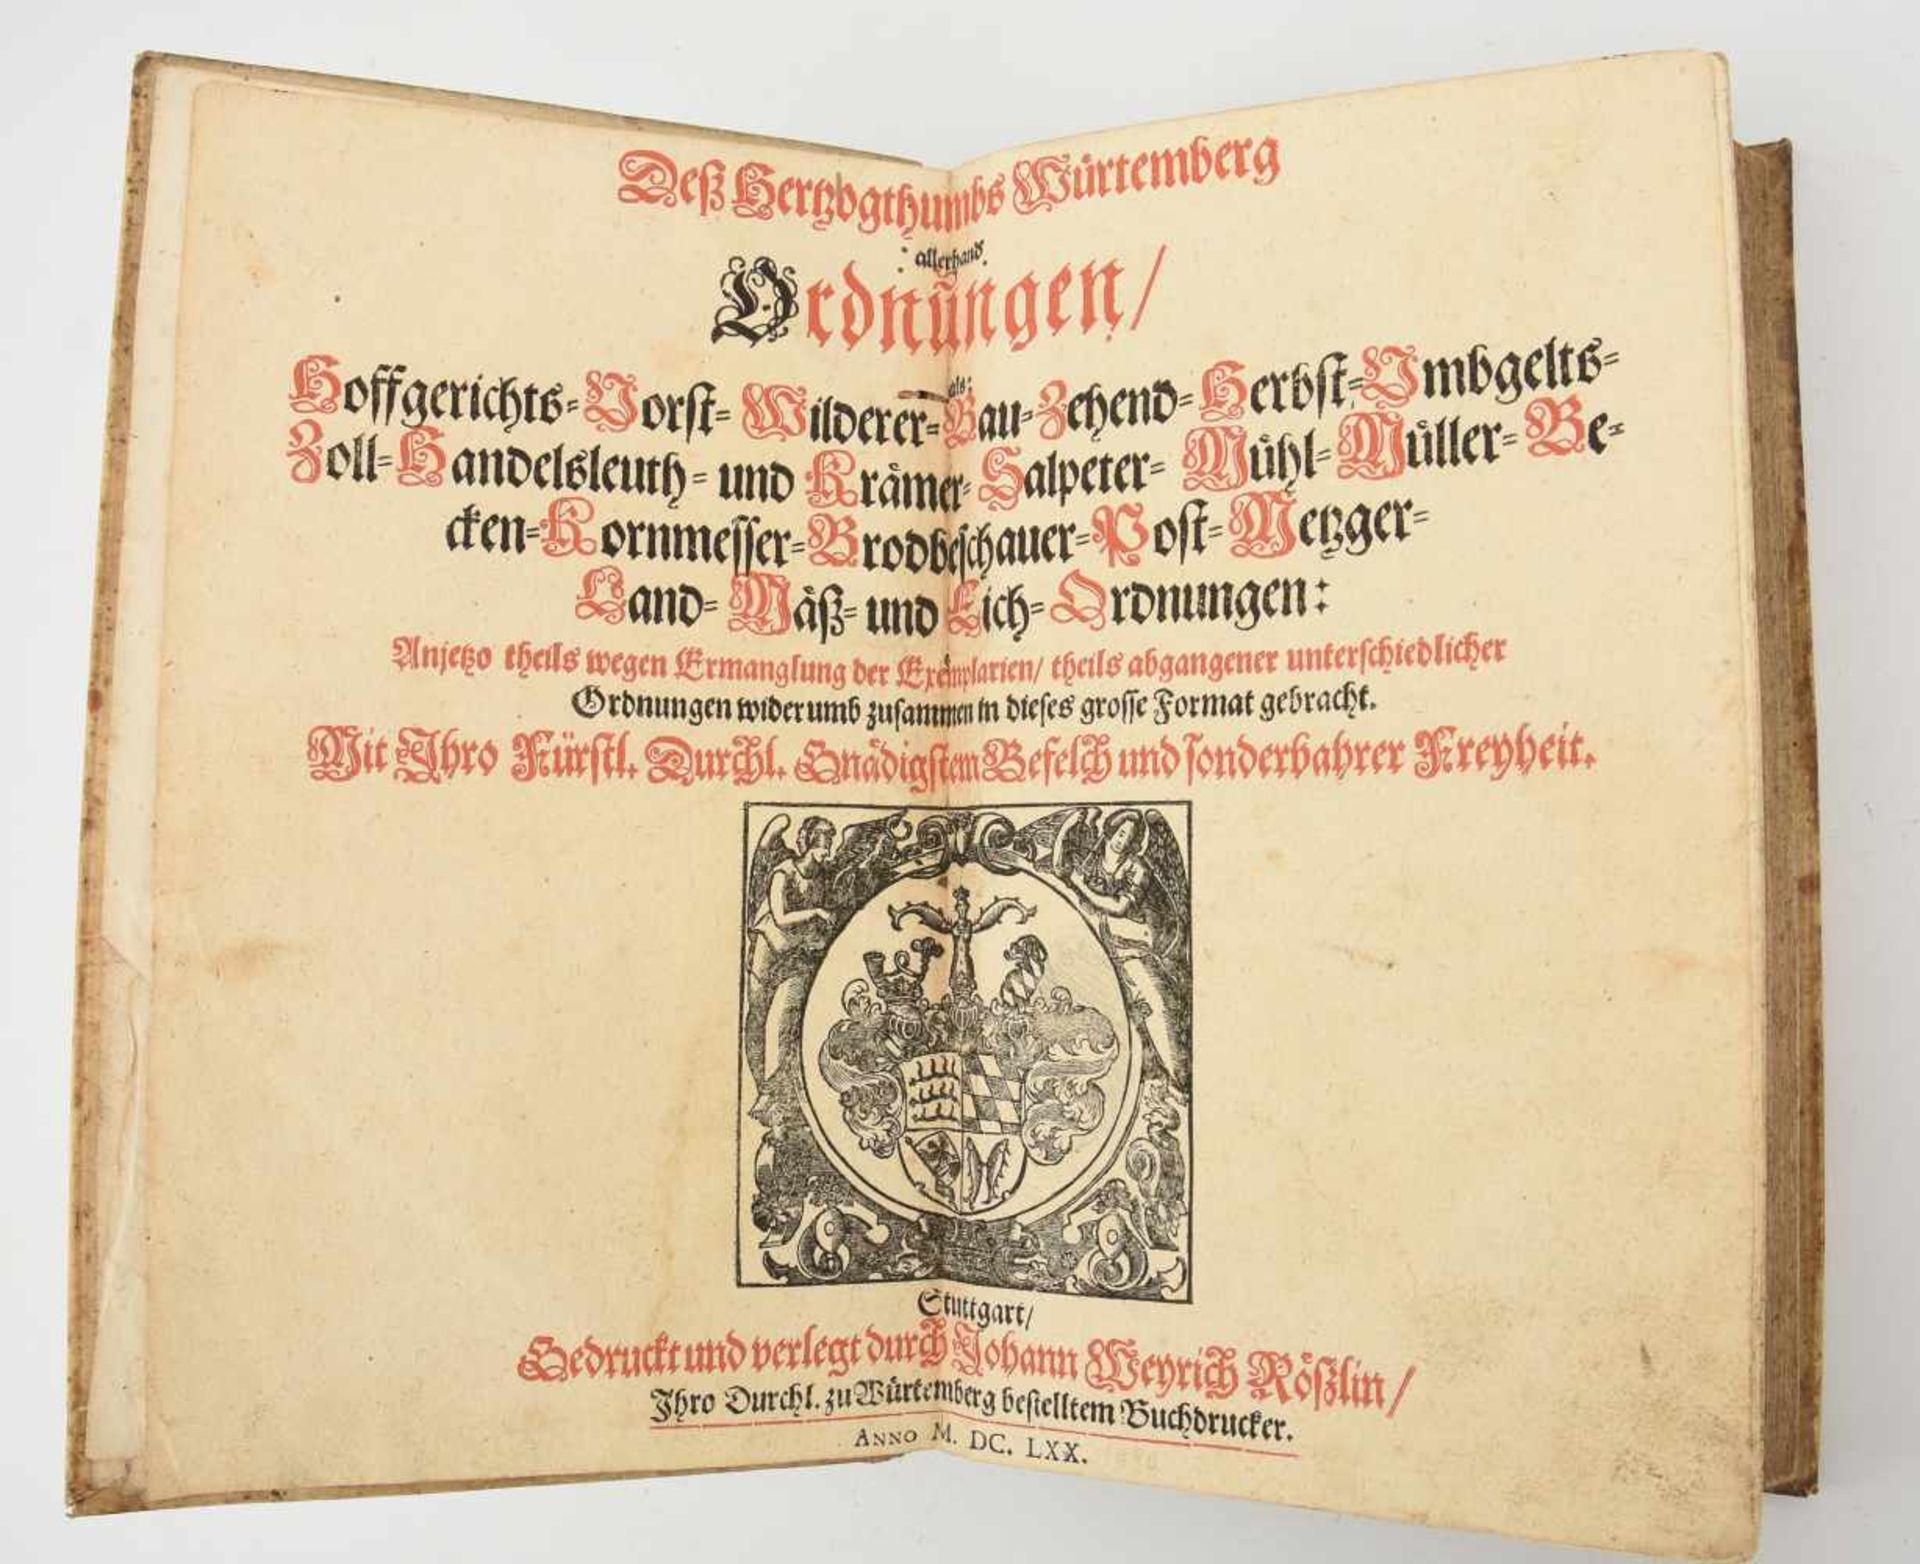 Deß Hertzogthumbs Würtemberg
allerhand
Ordnungen/
als:
Hoffgerichts- Vorst- Wilderer- Bau- Zehend- Herbst- Umbgelts-
Zoll- Handelsleuth- und Krämer- Salpeter- Mühl- Müller- Be-
cken- Kornmesser- Brodbeschauer- Post- Metzger-
Land- Mäß- und Eich- Ordnungen:
Anjetzo theils wegen Ermanglung der Exemplarien/ theils abgangener unterschiedlicher
Ordnungen widerumb zusammen in dieses grosse Format gebracht.
Mit Ihro Fürstl. Durchl. Gnädigstem Befelch und sonderbahrer Freyheit.
Stuttgart/
Gedruckt und verlegt durch Johann Weyrich Rößlin/
Ihro Durchl. zu Würtemberg bestelltem Buchdrucker.
Anno M. DC. LXX.